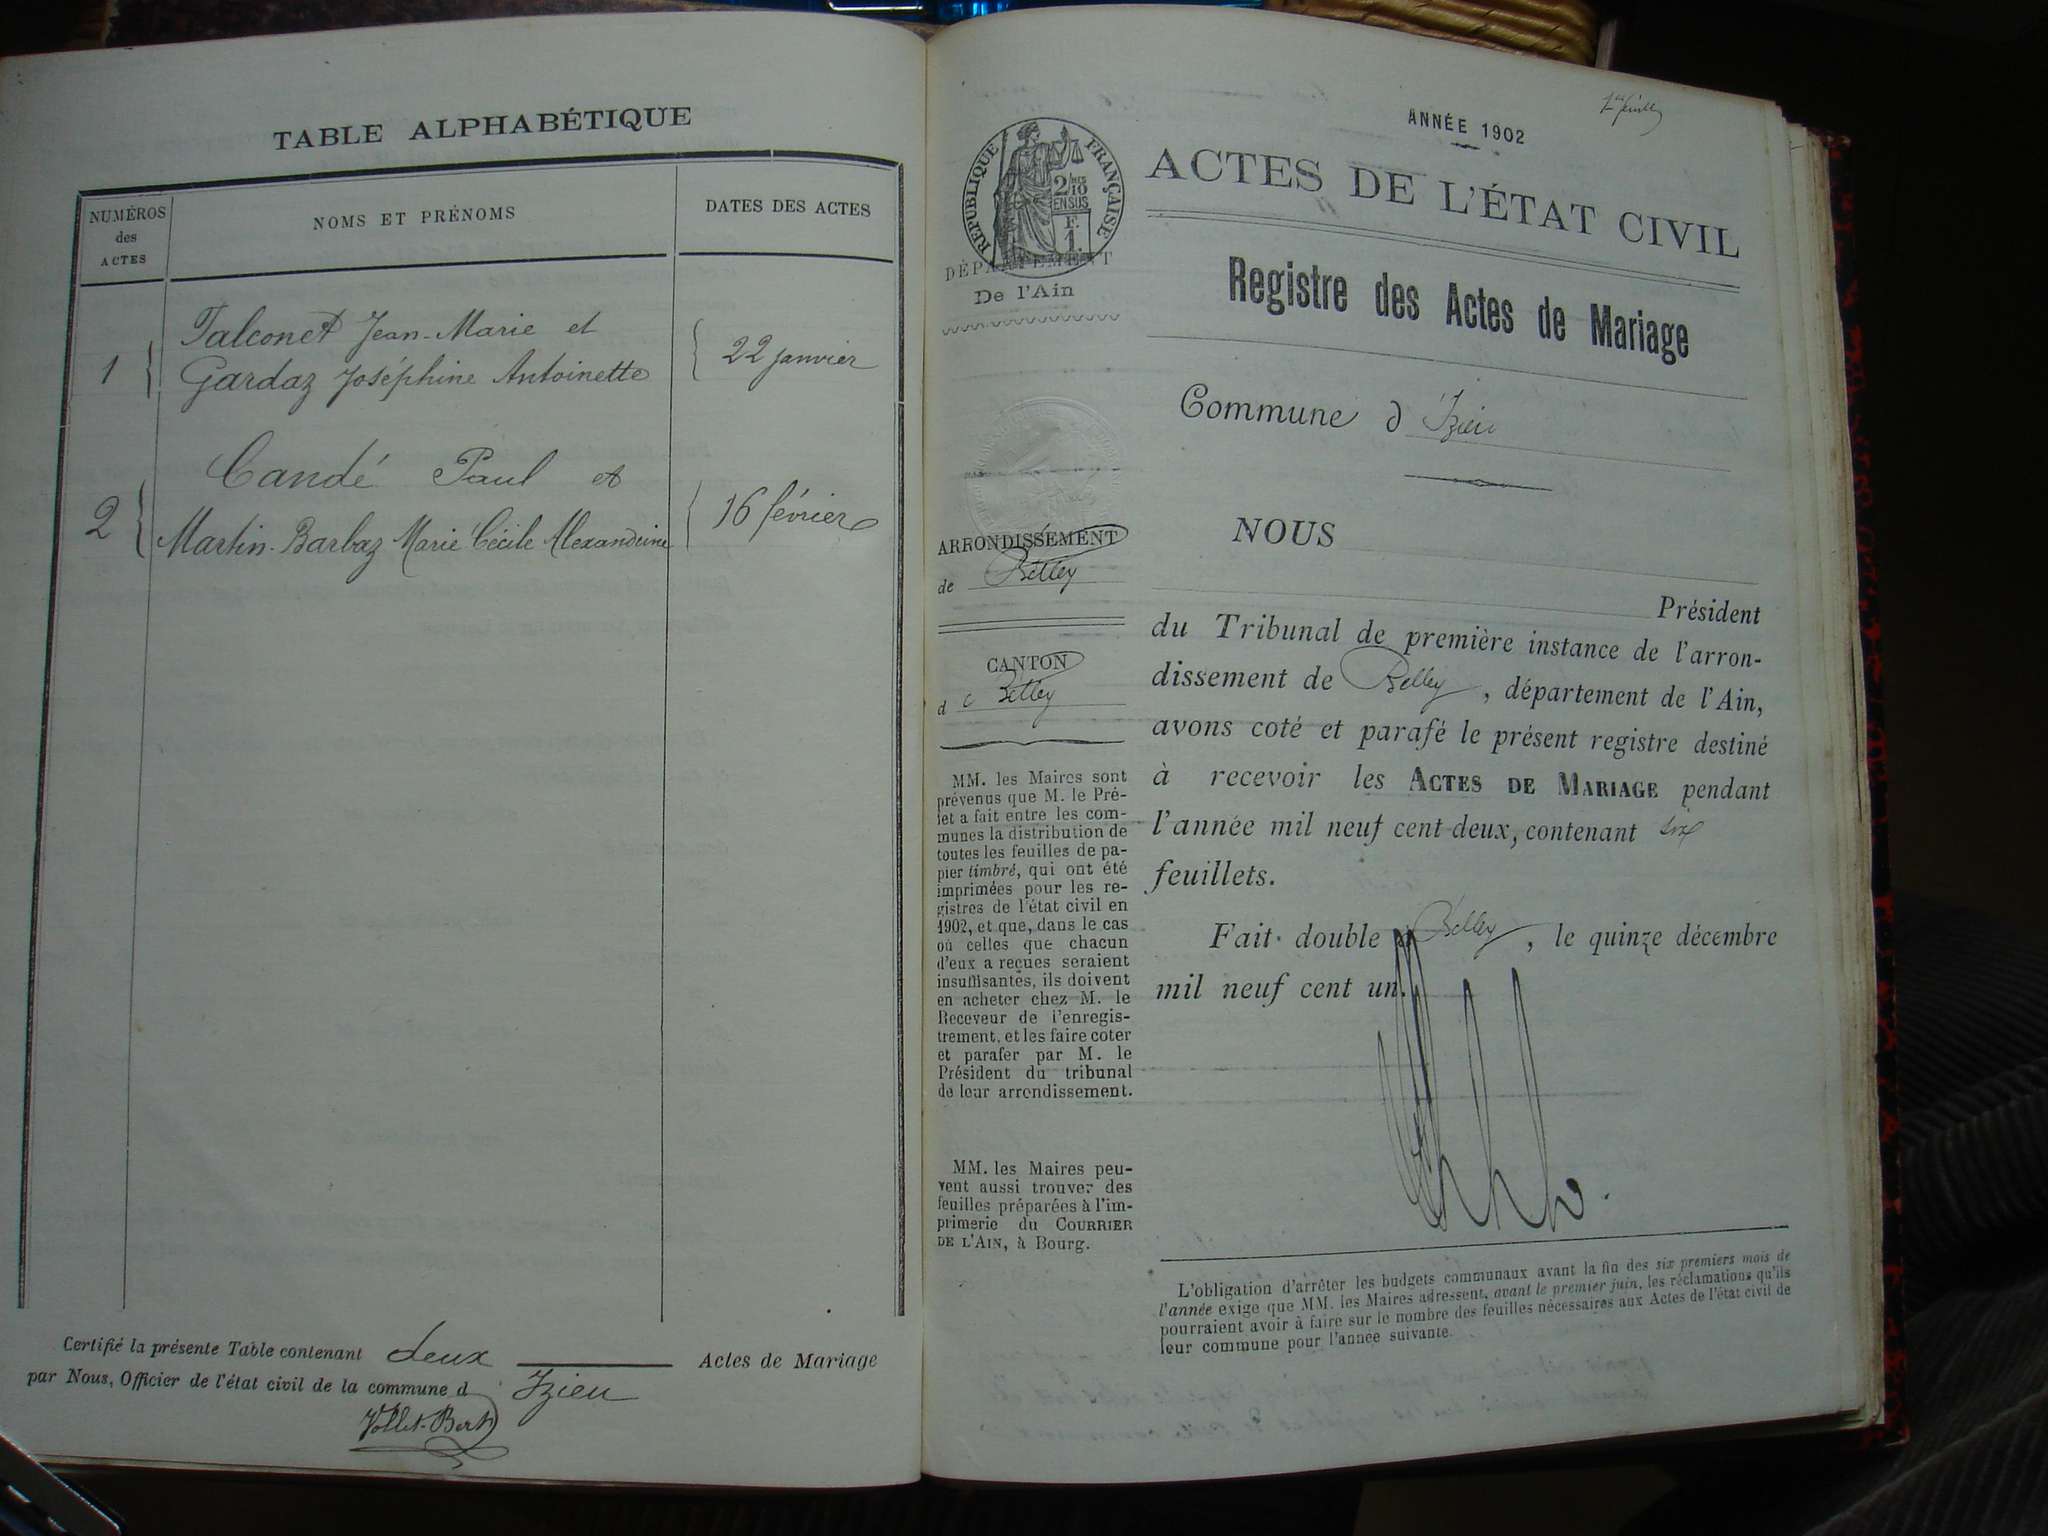 TABLE ALPHABÉTIQUE
NUMÉROS
des
ACTES
NOMS ET PRÉNOMS
DATES DES ACTES
1
Falconet Jean-Marie et
Gardaz Joséphine Antoinette
22 janvier
2
Candé Paul et
Martin-Barbaz Marie Cécile Alexandrine
16 février
Certifié la présente Table contenant deux Actes de Mariage
par Nous, Officier de l'état civil de la commune d Izieu
Vollet-Bert
ANNÉE 1902
RÉPUBLIQUE FRANÇAISE
2/10
EN SUS
F.
1.
DÉPARTEMENT
De l'Ain
ARRONDISSEMENT
de Belley
CANTON
d e Belley
MM. les Maires sont
prévenus que M. le Pré-
fet a fait entre les com-
munes la distribution de
toutes les feuilles de pa-
pier timbré, qui ont été
imprimées pour les re-
gistres de l'état civil en
1902, et que, dans le cas
où celles que chacun
d'eux a reçues seraient
insuffisantes, ils doivent
en acheter chez M. le
Receveur de l'enregis-
trement, et les faire coter
et parafer par M. le
Président du tribunal
de leur arrondissement.
MM. les Maires peu-
vent aussi trouver des
feuilles préparées à l'im-
primerie du COURRIER
DE L'AIN, à Bourg.
ACTES DE L'ÉTAT CIVIL
Registre des Actes de Mariage
Commune d' Izieu
NOUS
Président
du Tribunal de première instance de l'arron-
dissement de Belley, département de l'Ain,
avons coté et parafé le présent registre destiné
à recevoir les ACTES DE MARIAGE pendant
l'année mil neuf cent deux, contenant six
feuillets.
Fait double à Belley, le quinze décembre
mil neuf cent un.
L'obligation d'arrêter les budgets communaux avant la fin des six premiers mois de
l'année exige que MM. les Maires adressent, avant le premier juin, les réclamations qu'ils
pourraient avoir à faire sur le nombre des feuilles nécessaires aux Actes de l'état civil de
leur commune pour l'année suivante.